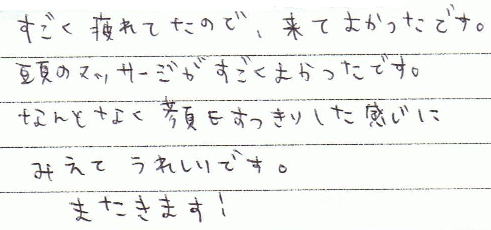 すごく疲れてたので、来てよかったです。
頭のマッサージがすごくよかったです。
なんとなく顔もすっきりした感じに
みえてうれしいです。
またきます!